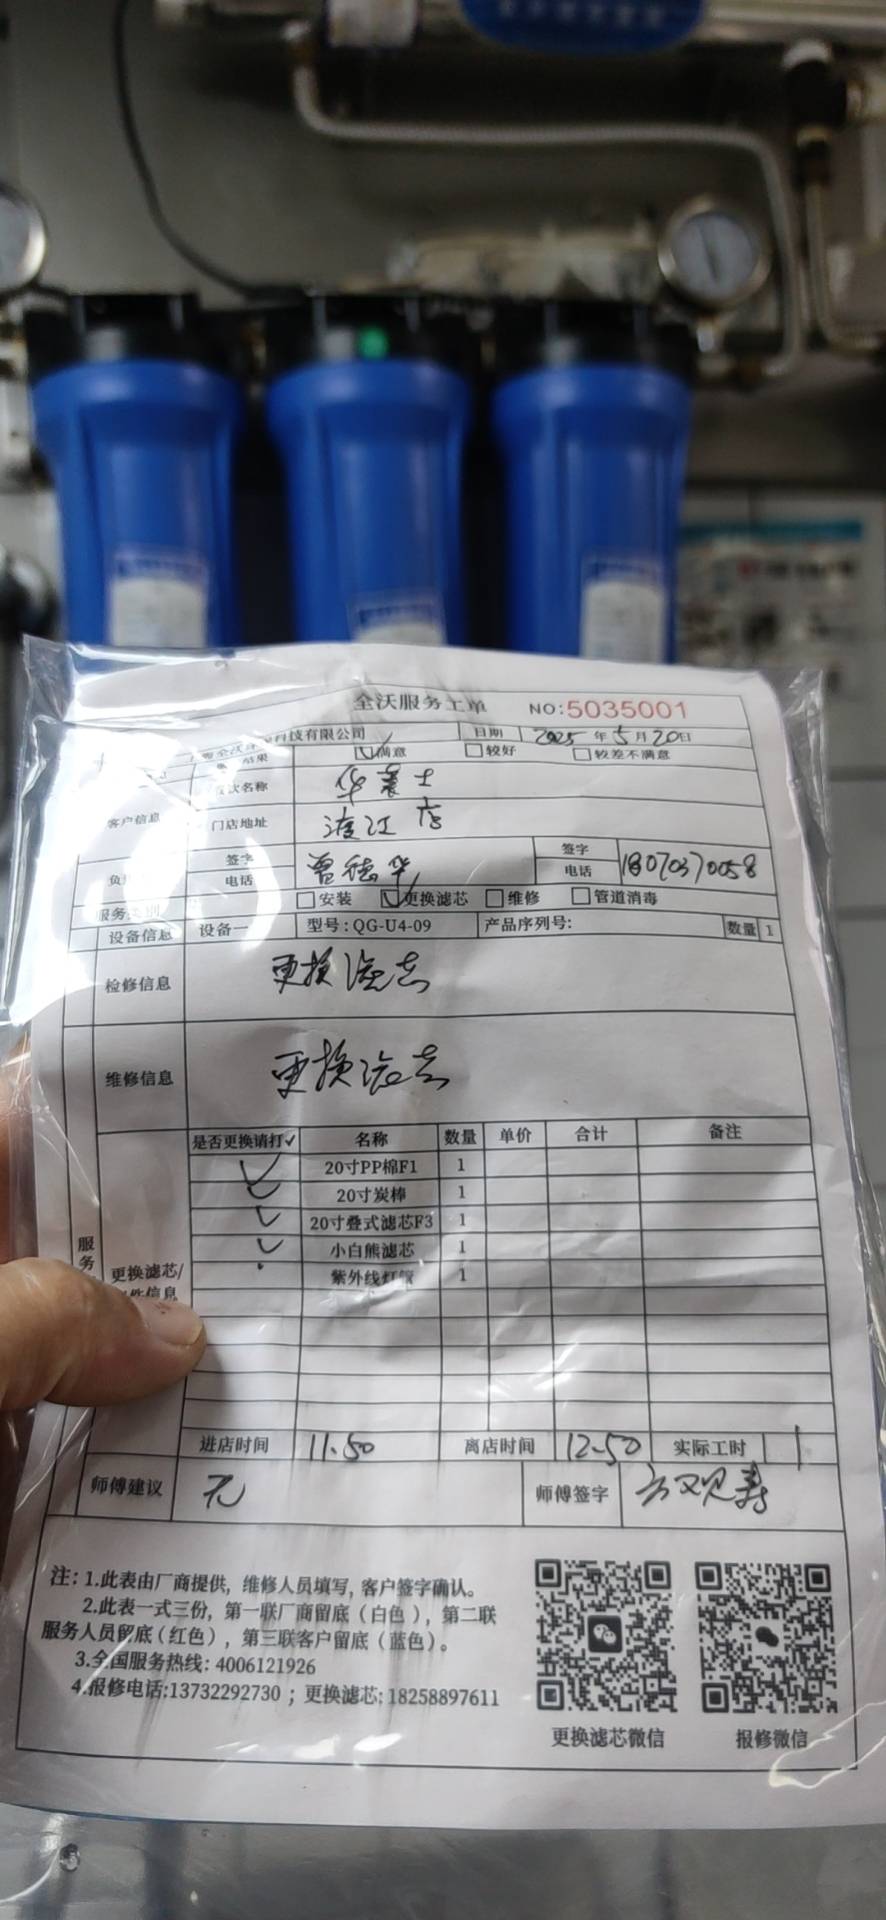 全沃服务工单 NO:5035001
科技有限公司 日期 2025 年 5 月 20日
结果 满意 较好 较差不满意
客户信息 名称 华莱士
门店地址 渡江店
签字 曾德华 签字
电话 电话 18070370058
安装 更换滤芯 维修 管道消毒
设备信息 设备一 型号:QG-U4-09 产品序列号: 数量 1
检修信息 更换滤芯
维修信息 更换滤芯
是否更换请打✓ 名称 数量 单价 合计 备注
✓ 20寸PP棉F1 1
✓ 20寸炭棒 1
✓ 20寸叠式滤芯F3 1
✓ 小白熊滤芯 1
紫外线灯管 1
服务
更换滤芯/
件信息
进店时间 11.50 离店时间 12-50 实际工时 1
师傅建议 无 师傅签字
注: 1.此表由厂商提供, 维修人员填写, 客户签字确认。
2.此表一式三份, 第一联厂商留底(白色), 第二联
服务人员留底(红色), 第三联客户留底(蓝色)。
3.全国服务热线: 4006121926
4.报修电话:13732292730 ; 更换滤芯: 18258897611
更换滤芯微信 报修微信